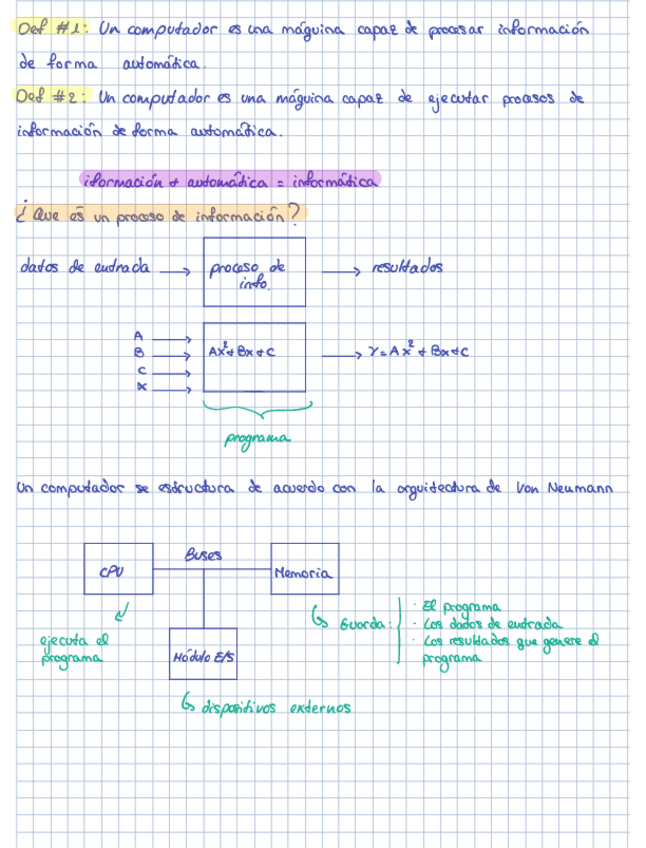 Def #1: Un computador es una máquina capaz de procesar información
de forma automática.
Def #2: Un computador es una máquina capaz de ejecutar procesos de
información de forma automática.
información + automática = informática
¿Que es un proceso de información?
datos de entrada → proceso de → resultados
info.
A
B
C
x
Ax²+Bx+C → Y=Ax²+Bx+C
programa
Un computador se estructura de acuerdo con la arquitectura de Von Neumann
CPU Buses Memoria
ejecuta el
programa
Guarda:
· El programa
· Los datos de entrada
· Los resultados que genere el
programa
Módulo E/S
dispositivos externos